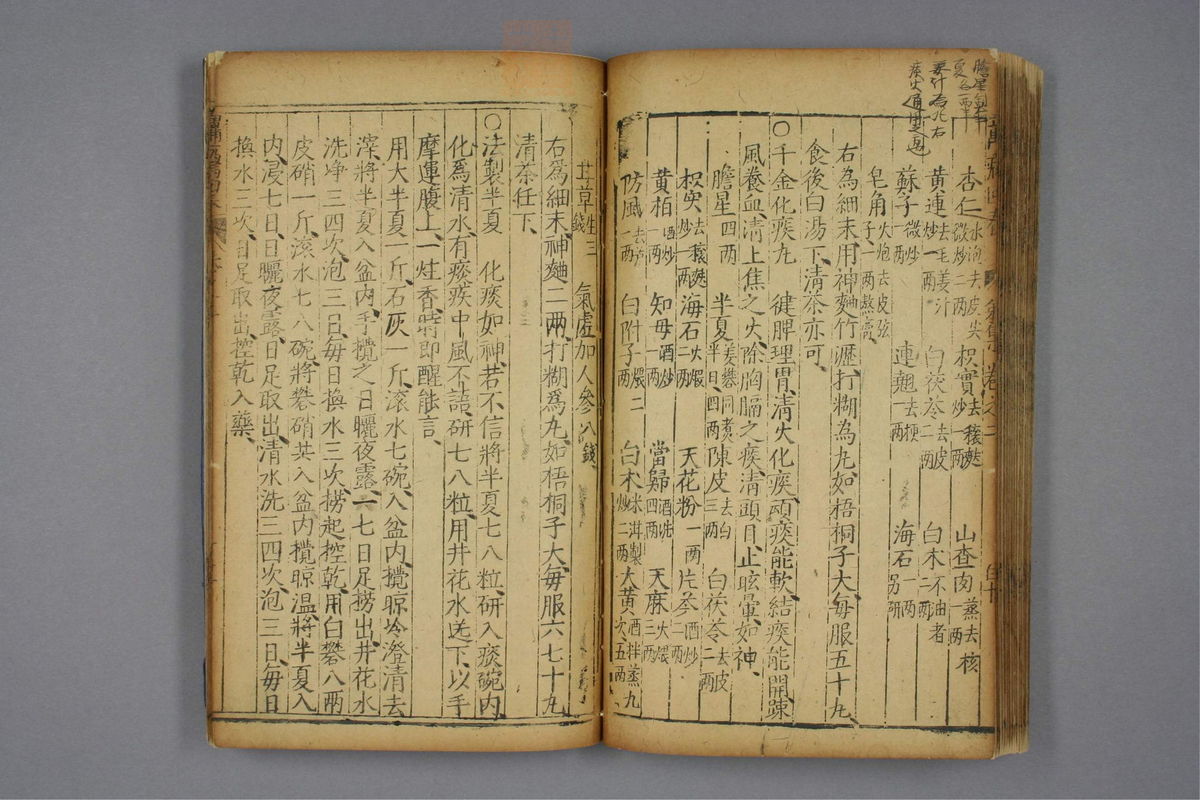 杏仁 水泡去皮尖 微炒二兩 枳實 去穰麩 炒一兩 山查肉 蒸去核 一兩
黄連 去毛姜汁 炒一兩 白茯苓 去皮 二兩 白木 不油者 二兩
蘇子 微炒 一兩 連翹 去梗 一兩 海石 一兩 另研
皂角 火炮去皮弦 子一兩熬膏
右為細末用神麯竹瀝打糊為丸如梧桐子大每服五十丸
食後白湯下清茶亦可
○千金化痰丸 健脾理胃清火化痰頑痰能軟結痰能開踈
風養血清上焦之火除胸膈之痰清頭目止眩暈如神
膽星 四兩 半夏 姜礬同煮 半日四兩 陳皮 去白 三兩 白茯苓 去皮 二兩
枳實 去穰麩 炒一兩 海石 火煅 一兩 天花粉 一兩 片芩 酒炒 二兩
黄柏 酒炒 一兩 知母 酒炒 一兩 當歸 酒洗 四兩 天麻 火煨 三兩
防風 去芦 一兩 白附子 煨二兩 白木 米泔製 炒二兩 大黄 酒拌蒸九 次五兩
甘草 生三錢 氣虛加人參八錢
右爲細末神麯二兩打糊爲丸如梧桐子大每服六七十丸
清茶任下
○法製半夏 化痰如神若不信將半夏七八粒研入痰碗内
化爲清水有痰疾中風不語研七八粒用井花水送下以手
摩運腹上一炷香時即醒能言
用大半夏一斤石灰一斤滚水七碗入盆内攪晾冷澄清去
滓將半夏入盆内手攪之日曬夜露一七日足撈出井花水
洗净三四次泡三日每日換水三次撈起控乾用白礬八兩
皮硝一斤滚水七八碗將礬硝共入盆内攪晾温將半夏入
内浸七日日曬夜露日足取出清水洗三四次泡三日每日
換水三次日足取出控乾入藥